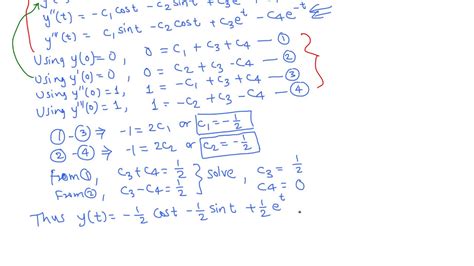 y''(t) = -c₁cost - c₂sint + c₃eᵗ + c₄e⁻ᵗ
y'''(t) = c₁sint - c₂cost + c₃eᵗ - c₄e⁻ᵗ
Using y(0)=0, 0 = c₁ + c₃ + c₄ — ①
Using y'(0)=0, 0 = c₂ + c₃ - c₄ — ②
Using y''(0)=1, 1 = -c₁ + c₃ + c₄ — ③
Using y'''(0)=1, 1 = -c₂ + c₃ - c₄ — ④
① - ③ ⇒ -1 = 2c₁ or c₁ = -1/2
② - ④ ⇒ -1 = 2c₂ or c₂ = -1/2
From ①, c₃ + c₄ = 1/2 } solve, c₃ = 1/2
From ②, c₃ - c₄ = 1/2 c₄ = 0
Thus y(t) = -1/2 cost - 1/2 sint + 1/2 eᵗ